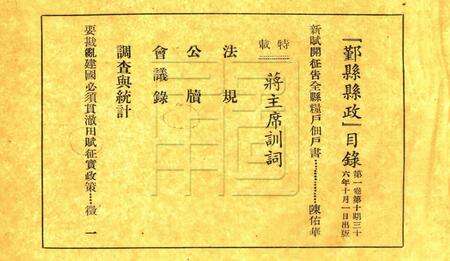 「鄞縣縣政」目錄
第一卷第十期三十
六年十月一日出版
新賦開征告全縣糧戶佃戶書………陳佑華
特載
蔣主席訓詞
法規
公牘
會議錄
調查與統計
要戡亂建國必須貫澈田賦征實政策…徵一